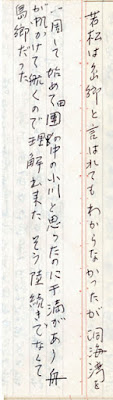 若松は島郷と言はれてもわからなかったが洞海湾を
一周して始めて田圃の中の小川と思ったのに干満があり舟
が帆かけて航くので理解出来た そう陸続きでなくて
島郷だった